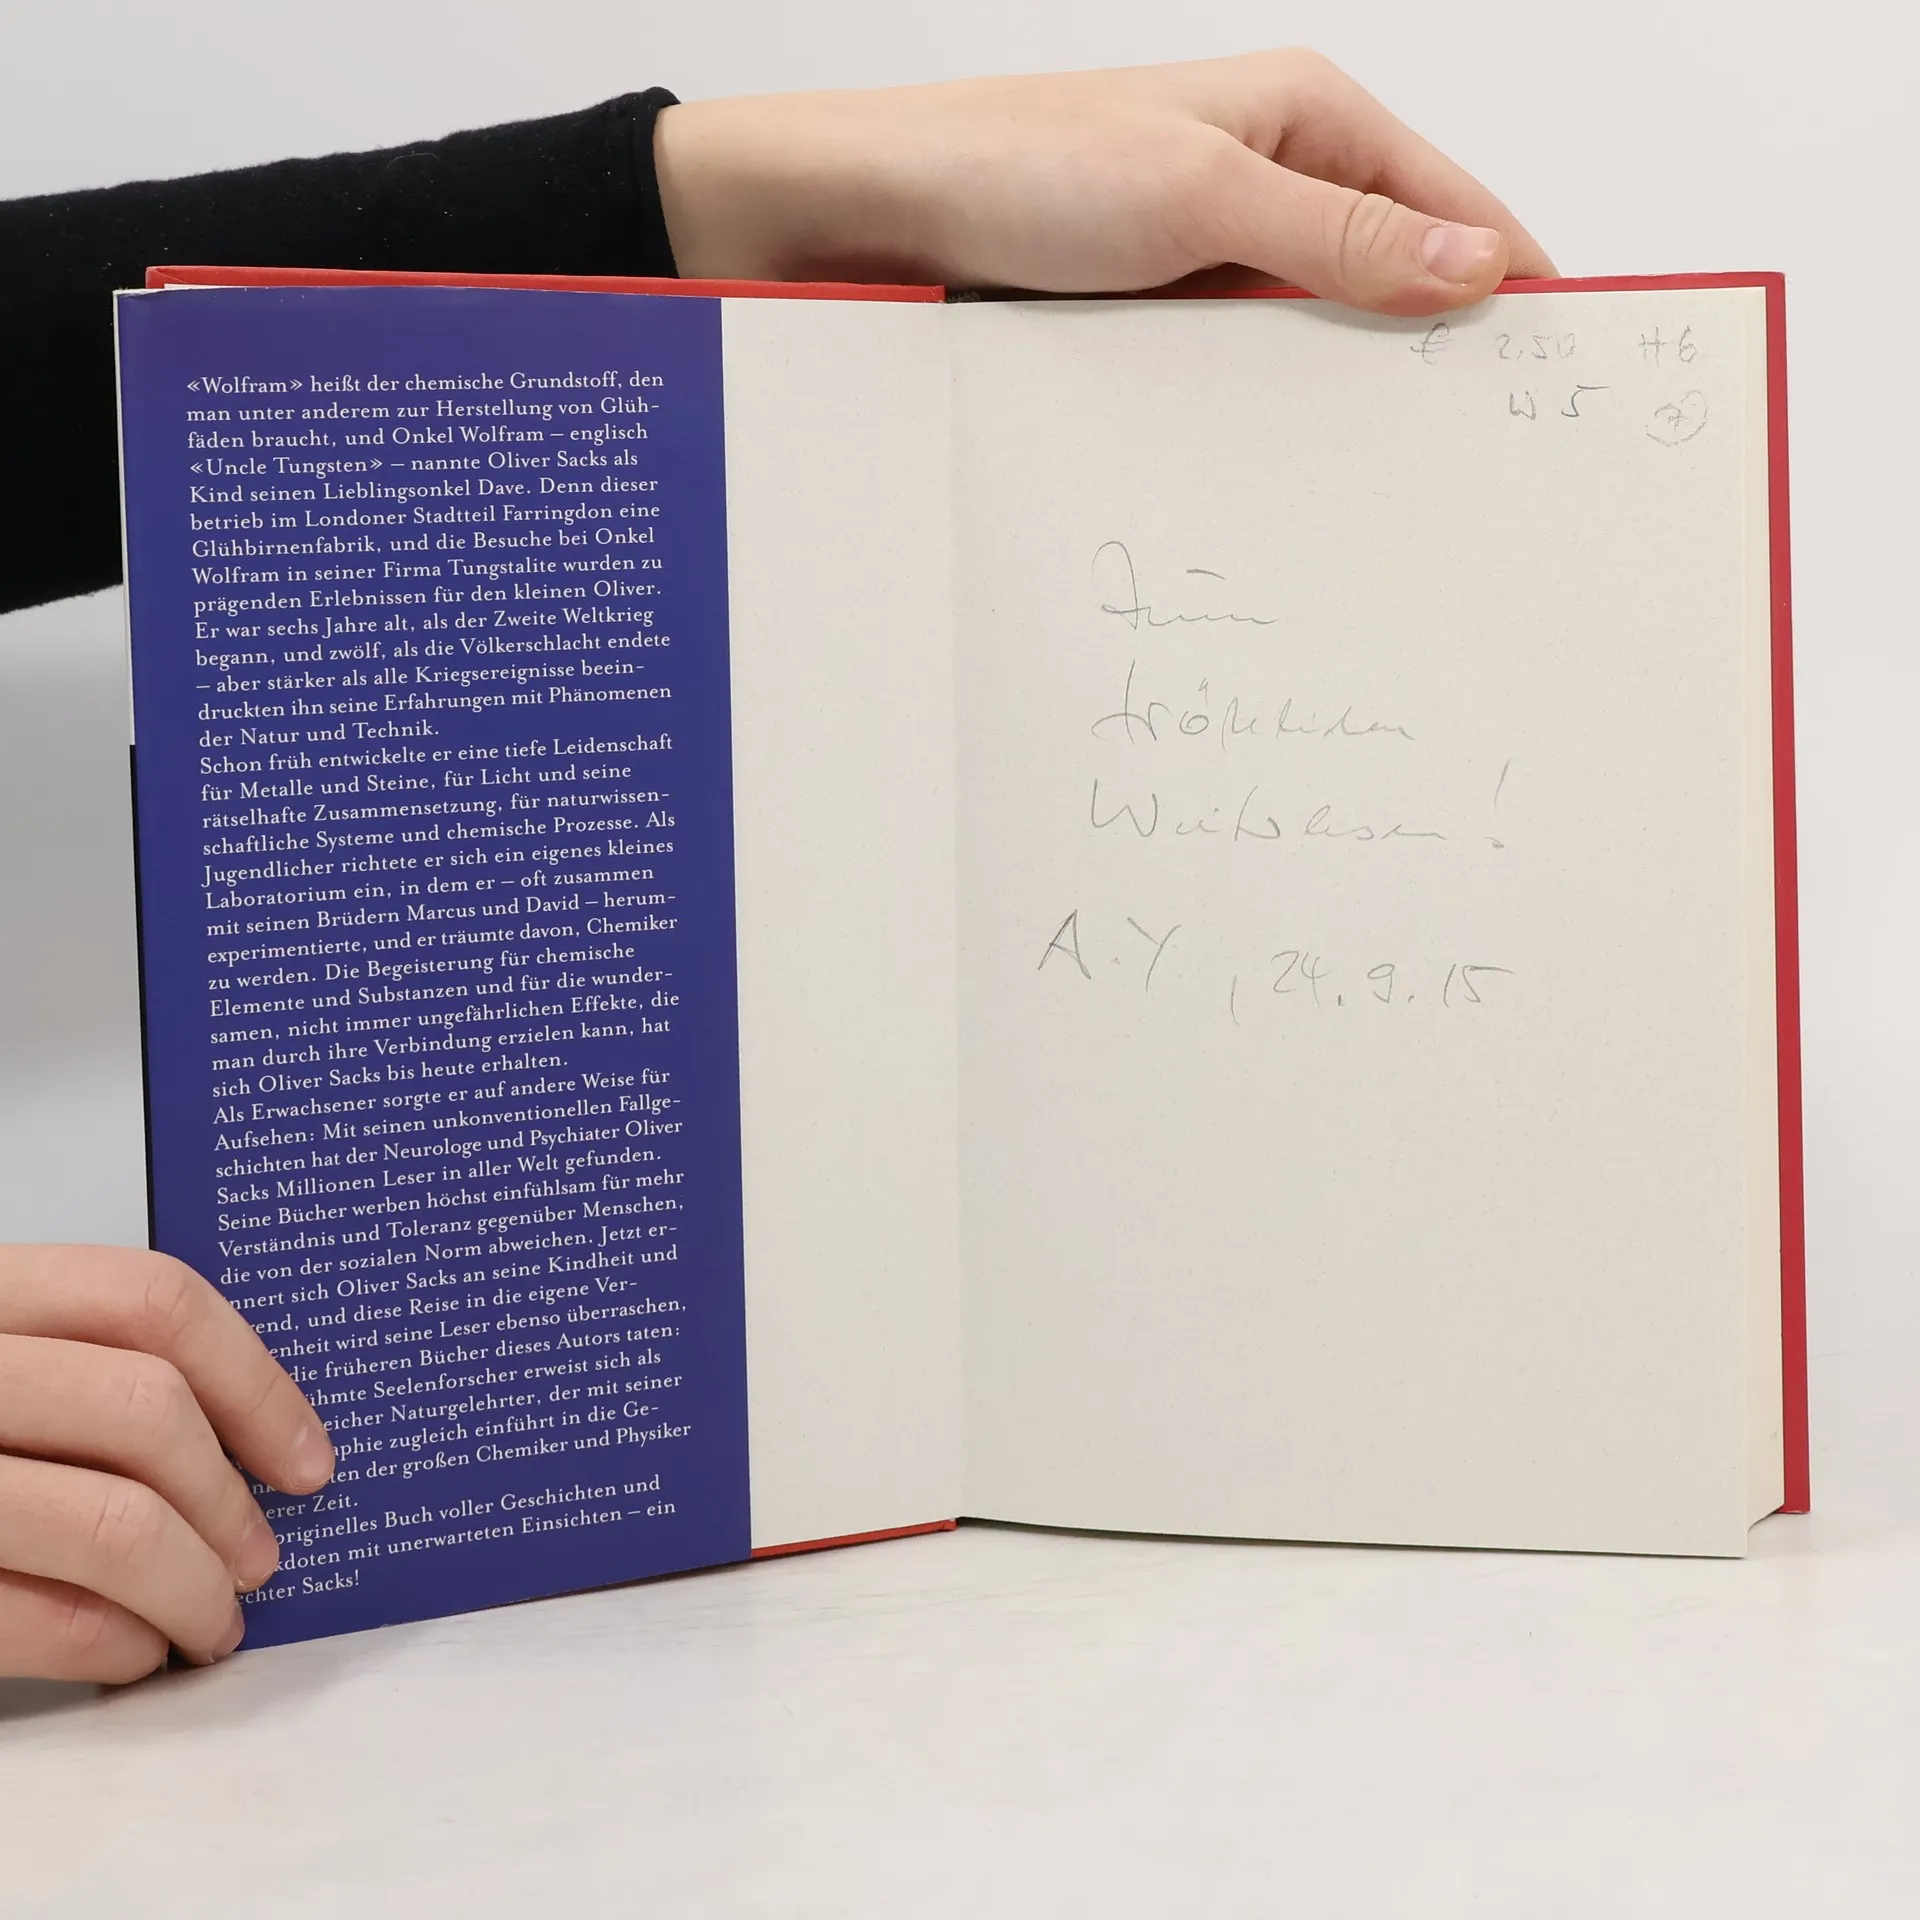 «Wolfram» heißt der chemische Grundstoff, den
man unter anderem zur Herstellung von Glüh-
fäden braucht, und Onkel Wolfram – englisch
«Uncle Tungsten» – nannte Oliver Sacks als
Kind seinen Lieblingsonkel Dave. Denn dieser
betrieb im Londoner Stadtteil Farringdon eine
Glühbirnenfabrik, und die Besuche bei Onkel
Wolfram in seiner Firma Tungstalite wurden zu
prägenden Erlebnissen für den kleinen Oliver.
Er war sechs Jahre alt, als der Zweite Weltkrieg
begann, und zwölf, als die Völkerschlacht endete
– aber stärker als alle Kriegsereignisse beein-
druckten ihn seine Erfahrungen mit Phänomenen
der Natur und Technik.
Schon früh entwickelte er eine tiefe Leidenschaft
für Metalle und Steine, für Licht und seine
rätselhafte Zusammensetzung, für naturwissen-
schaftliche Systeme und chemische Prozesse. Als
Jugendlicher richtete er sich ein eigenes kleines
Laboratorium ein, in dem er – oft zusammen
mit seinen Brüdern Marcus und David – herum-
experimentierte, und er träumte davon, Chemiker
zu werden. Die Begeisterung für chemische
Elemente und Substanzen und für die wunder-
samen, nicht immer ungefährlichen Effekte, die
man durch ihre Verbindung erzielen kann, hat
sich Oliver Sacks bis heute erhalten.
Als Erwachsener sorgte er auf andere Weise für
Aufsehen: Mit seinen unkonventionellen Fallge-
schichten hat der Neurologe und Psychiater Oliver
Sacks Millionen Leser in aller Welt gefunden.
Seine Bücher werben höchst einfühlsam für mehr
Verständnis und Toleranz gegenüber Menschen,
die von der sozialen Norm abweichen. Jetzt er-
nnert sich Oliver Sacks an seine Kindheit und
end, und diese Reise in die eigene Ver-
enheit wird seine Leser ebenso überraschen,
die früheren Bücher dieses Autors taten:
ühmte Seelenforscher erweist sich als
eicher Naturgelehrter, der mit seiner
aphie zugleich einführt in die Ge-
ten der großen Chemiker und Physiker
erer Zeit.
originelles Buch voller Geschichten und
kdoten mit unerwarteten Einsichten – ein
echter Sacks!
€ 2,50 H6
W 5 7
Zum
fröhlichen
Weiterlesen!
A.Y., 24.9.15